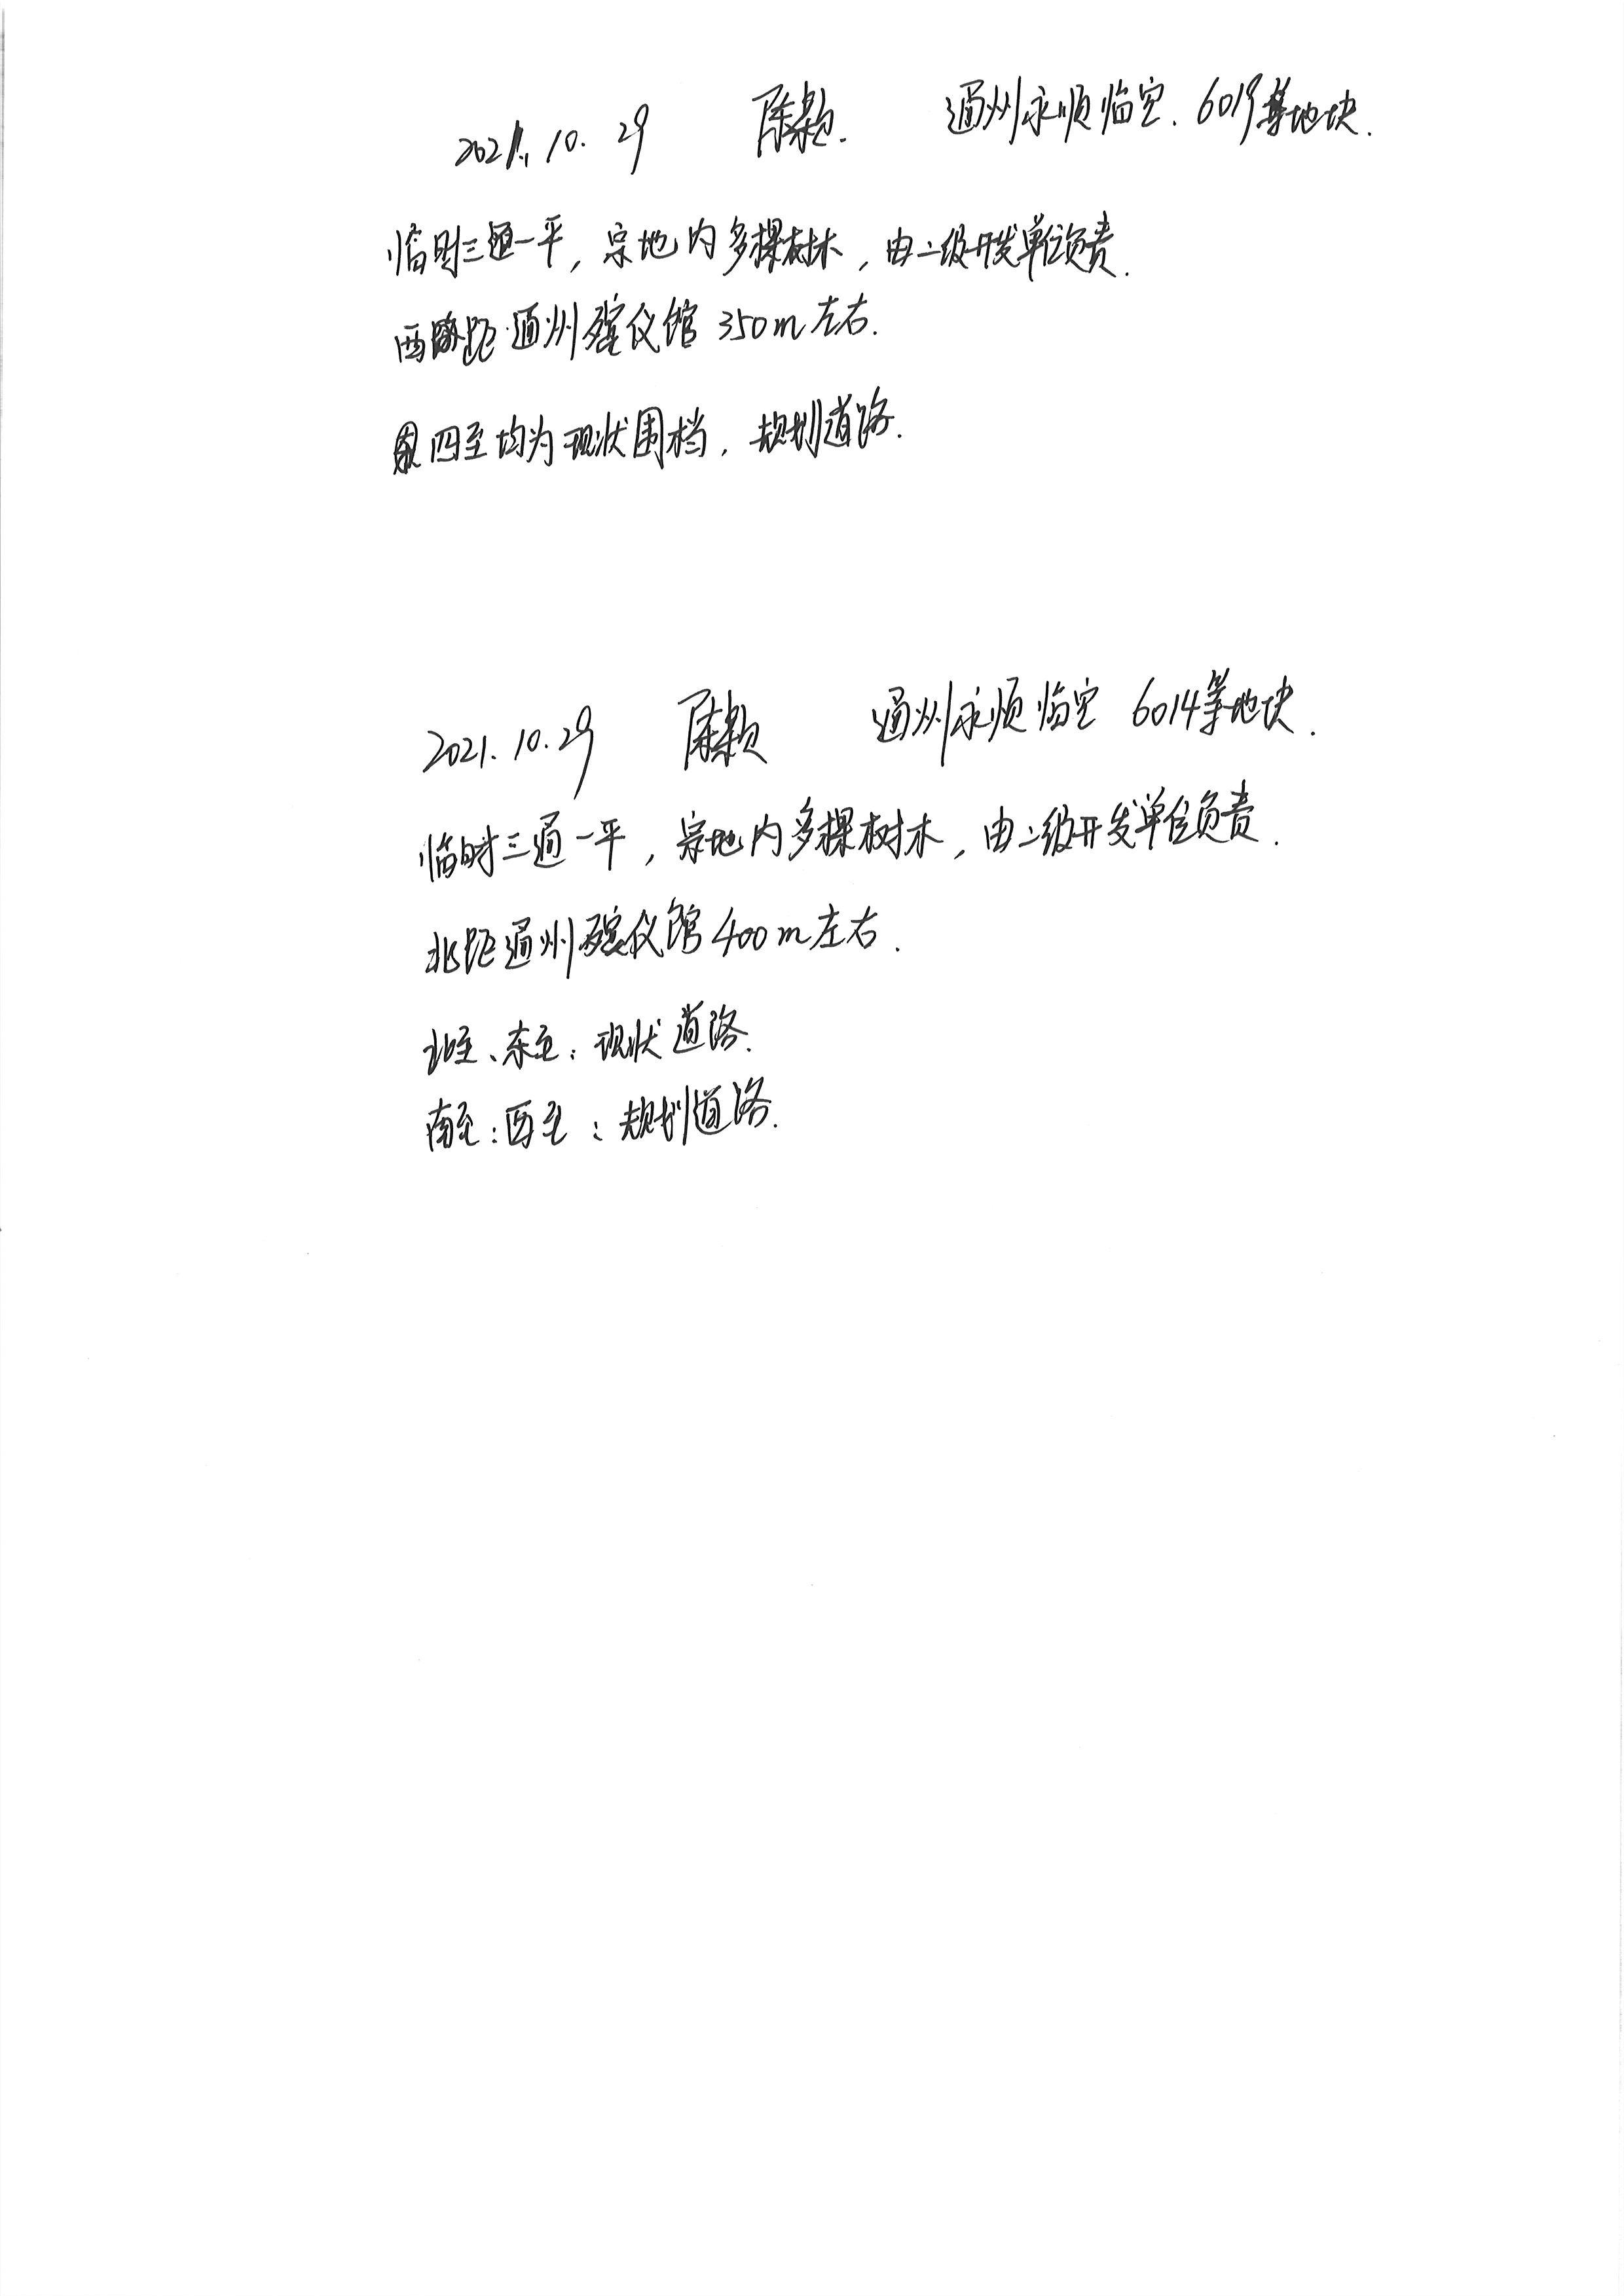 2021.10.29 陈颖. 通州永顺临空. 6019等地块.
临时三通一平,宗地内多棵树木,由二级开发单位负责.
西距通州殡仪馆350m左右.
四至均为现状围档,规划道路.
2021.10.29 陈颖 通州永顺临空 6014等地块.
临时三通一平,宗地内多棵树木,由二级开发单位负责.
北距通州殡仪馆400m左右.
北至、东至:现状道路.
南至:西至:规划道路.